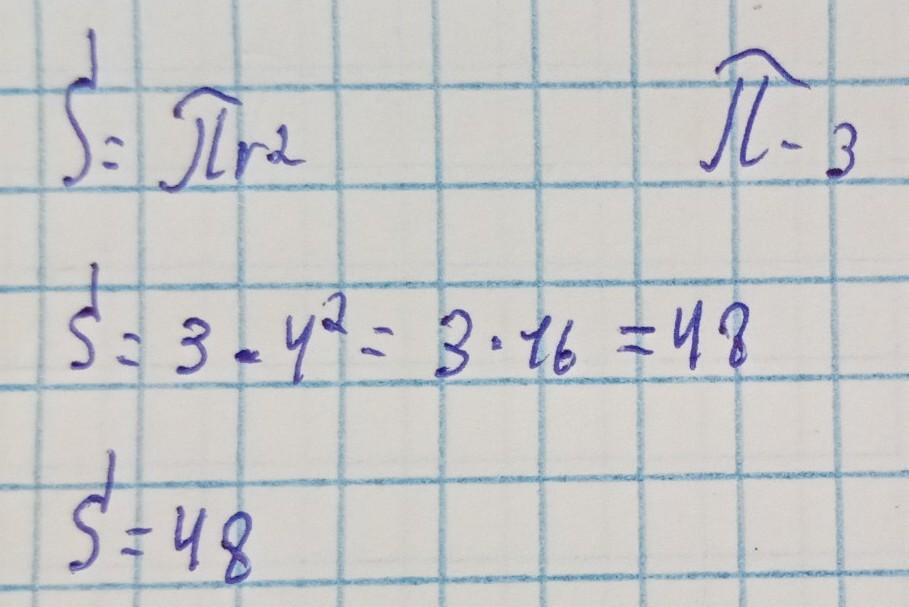 S = πr2 π - 3
S = 3 · 4² = 3 · 16 = 48
S = 48